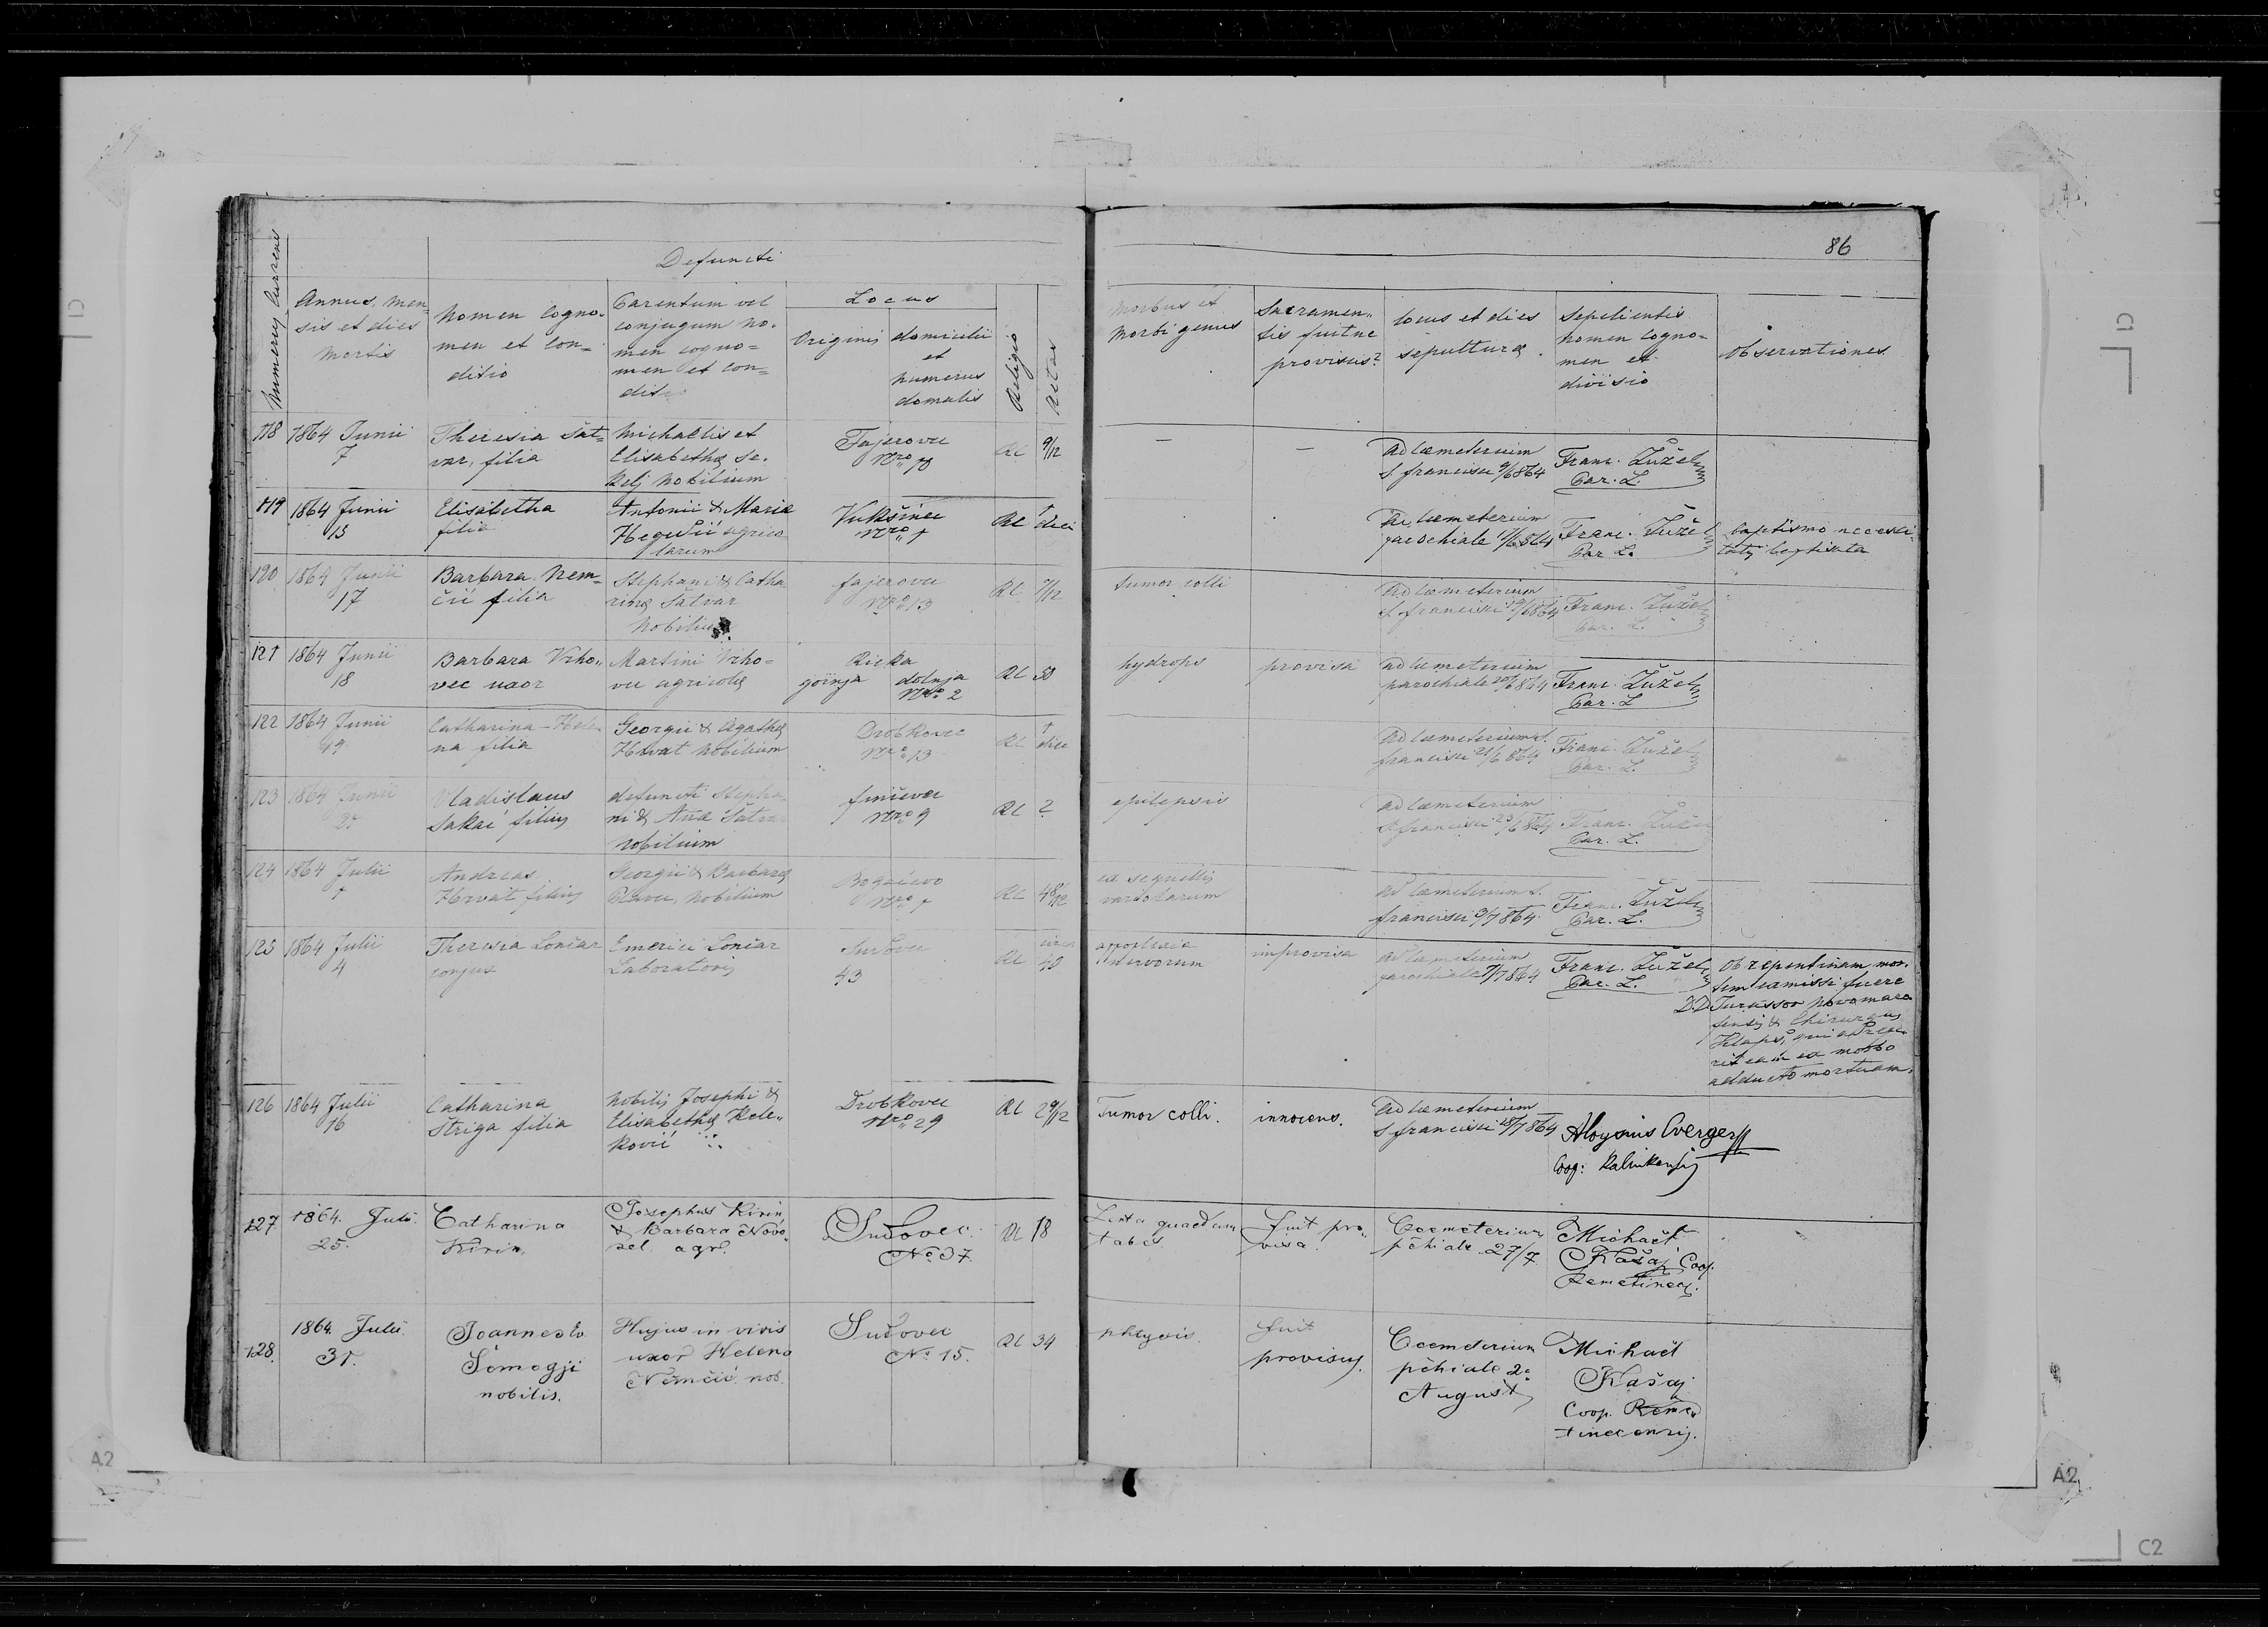 86
Defuncti
Numerus Currens
Annus, men=
sis et dies
Mortis
Nomen Cogno-
men et Con=
ditio
Parentum vel
conjugum no-
men cogno=
men et con=
ditio
Locus
Originis
domicilii
et
numerus
domalis
Religio
Aetas
Morbus et
Morbi genus
Sacramen-
tis fuitne
provisus?
Locus et dies
sepulturæ.
Sepelientis
Nomen Cogno-
men et
divisio
Observationes
118 1864 Junii
7
Theresia Šat=
var, filia
Michaelis et
Elisabethæ Se-
kelj Nobilium
Fajerovec
Nro 10
RC 9/12
—
—
Ad Cæmeterium
S francisci 9/6 864
Franc. Žužel
Par. L.
119 1864 Junii
15
Elisabetha
filia
Antonii & Mariæ
Hegušić agrico
larum
Vukšinec
Nro 1
RC 1 diei
Ad Cæmeterium
parochiale 17/6 864
Franc. Žužel
Par. L.
baptismo necessi-
tatis baptisata
120 1864 Junii
17
Barbara Nem=
čić filia
Stephani & Catha
rinæ Šatvar
Nobilium
fajerovec
Nro 13
RC 7/12
tumor colli
Ad Cæmeterium
S. francisci 19/6 864
Franc. Žužel
Par. L.
121 1864 Junii
18
Barbara Vrho-
vec uxor
Martini Vrho=
vec agricolæ
Rieka
gornja dolnja
Nro 2
RC 50
hydrops
provisa
Ad Cæmeterium
parochiale 20/6 864
Franc. Žužel
Par. L
122 1864 Junii
19
Catharina-Hele
na filia
Georgii & Agathæ
Horvat Nobilium
Drobkovec
Nro 13
RC 1 diei
Ad Cæmeterium S.
francisci 21/6 864
Franc. Žužel
Par. L.
123 1864 Junii
Vladislaus
Sakač filius
defuncti Stepha
ni & Anæ Šatvar
Nobilium
finičevec
Nro 9
RC 2
epilepsis
Ad Cæmeterium
S. francisci 864
Franc. Žužel
Par. L.
124 1864 Julii
1
Andreas
Horvat filius
Georgii & Barbaræ
Nobilium
Nro 1
RC
ex sequellis
variolarum
Ad Cæmeterium S.
francisci 3/7 864
Franc. Žužel
Par. L.
125 1864 Julii
4
Theresia Lončar
conjux
Emerici Lončar
Laboratoris
Sudovec
43
RC circa
40
appoplexia
nervorum
improvisa
Ad Cæmeterium
parochiale 7/7 864
Franc. Žužel
Par. L.
Ob repentinam mor-
tem eamissi fuere
DD Jurassor Novomaro
fensis & Chirurgus
Klaps, qui
rit eam ex morbo
adducto mortuam.
126 1864 Julii
16
Catharina
Striga filia
Nobilis Josephi &
Elisabethæ Kele-
ković
Drobkovec
Nro 29
RC 2 9/12
Tumor colli.
innocens.
Ad Cæmeterium
S francisci 18/7 864
Aloysius Cverger
Coop: Kalnikensis
127. 1864. Julii
25.
Catharina
Kirin
Josephus Kirin
& Barbara Novo-
sel agr.
Sudovec.
No 37.
RC 18
Lenta quaedam
tabes
fuit pro-
visa.
Coemeterium
pchiale 27/7
Michaël
Kašaj Coop.
Remetinecz.
128. 1864. Julii
31.
Joannes Ev.
Šomogji
nobilis.
Hujus in vivis
uxor Helena
Nemčić nob.
Sudovec
No 15.
RC 34
phtysis.
fuit
provisus.
Coemeterium
pchiale 2a
Augusti
Michaël
Kašaj
Coop. Reme-
tinecensis.
A2
A2
C2